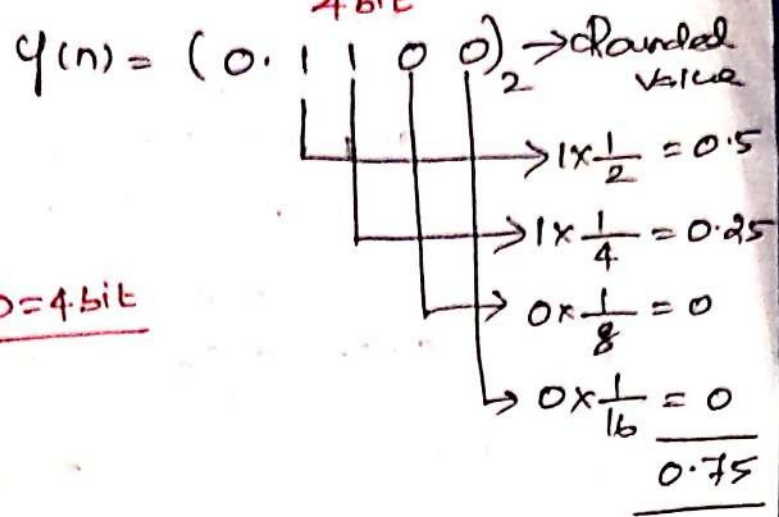 4 bit
y(n) = (0. 1 1 0 0)₂ → Rounded value
→ 1 × 1/2 = 0.5
→ 1 × 1/4 = 0.25
=4.bit
→ 0 × 1/8 = 0
→ 0 × 1/16 = 0
0.75